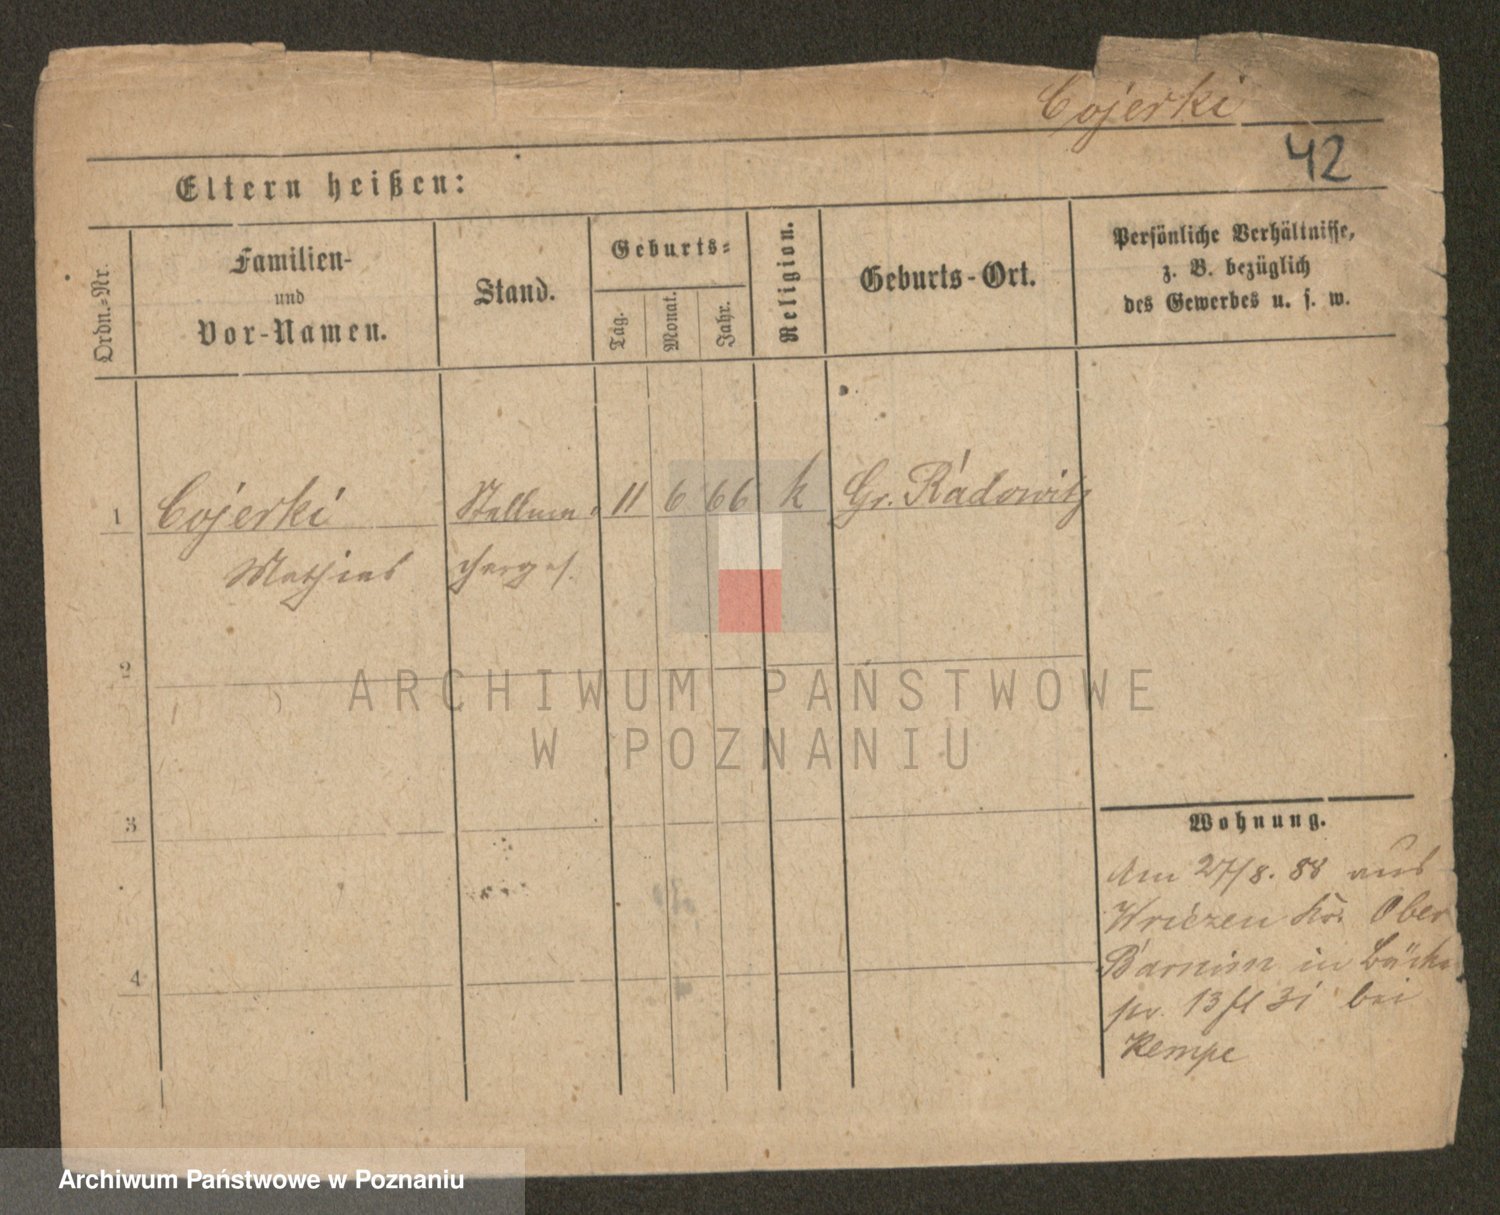 Cojerki
42
Eltern heißen:
Ordn.-Nr.
Familien-
und
Vor-Namen.
Stand.
Geburts-
Tag.
Monat.
Jahr.
Religion.
Geburts-Ort.
Persönliche Verhältnisse,
z. B. bezüglich
des Gewerbes u. s. w.
1 Cojerki Stellma 11 6 66 k Gr. Radowitz
Mathias
2
ARCHIWUM PAŃSTWOWE
W POZNANIU
3
Wohnung.
Am 27/8. 88 aus
Wriezen Kr. Ober
4
Barnim in Bäcker
13 31 bei
Kempe
Archiwum Państwowe w Poznaniu